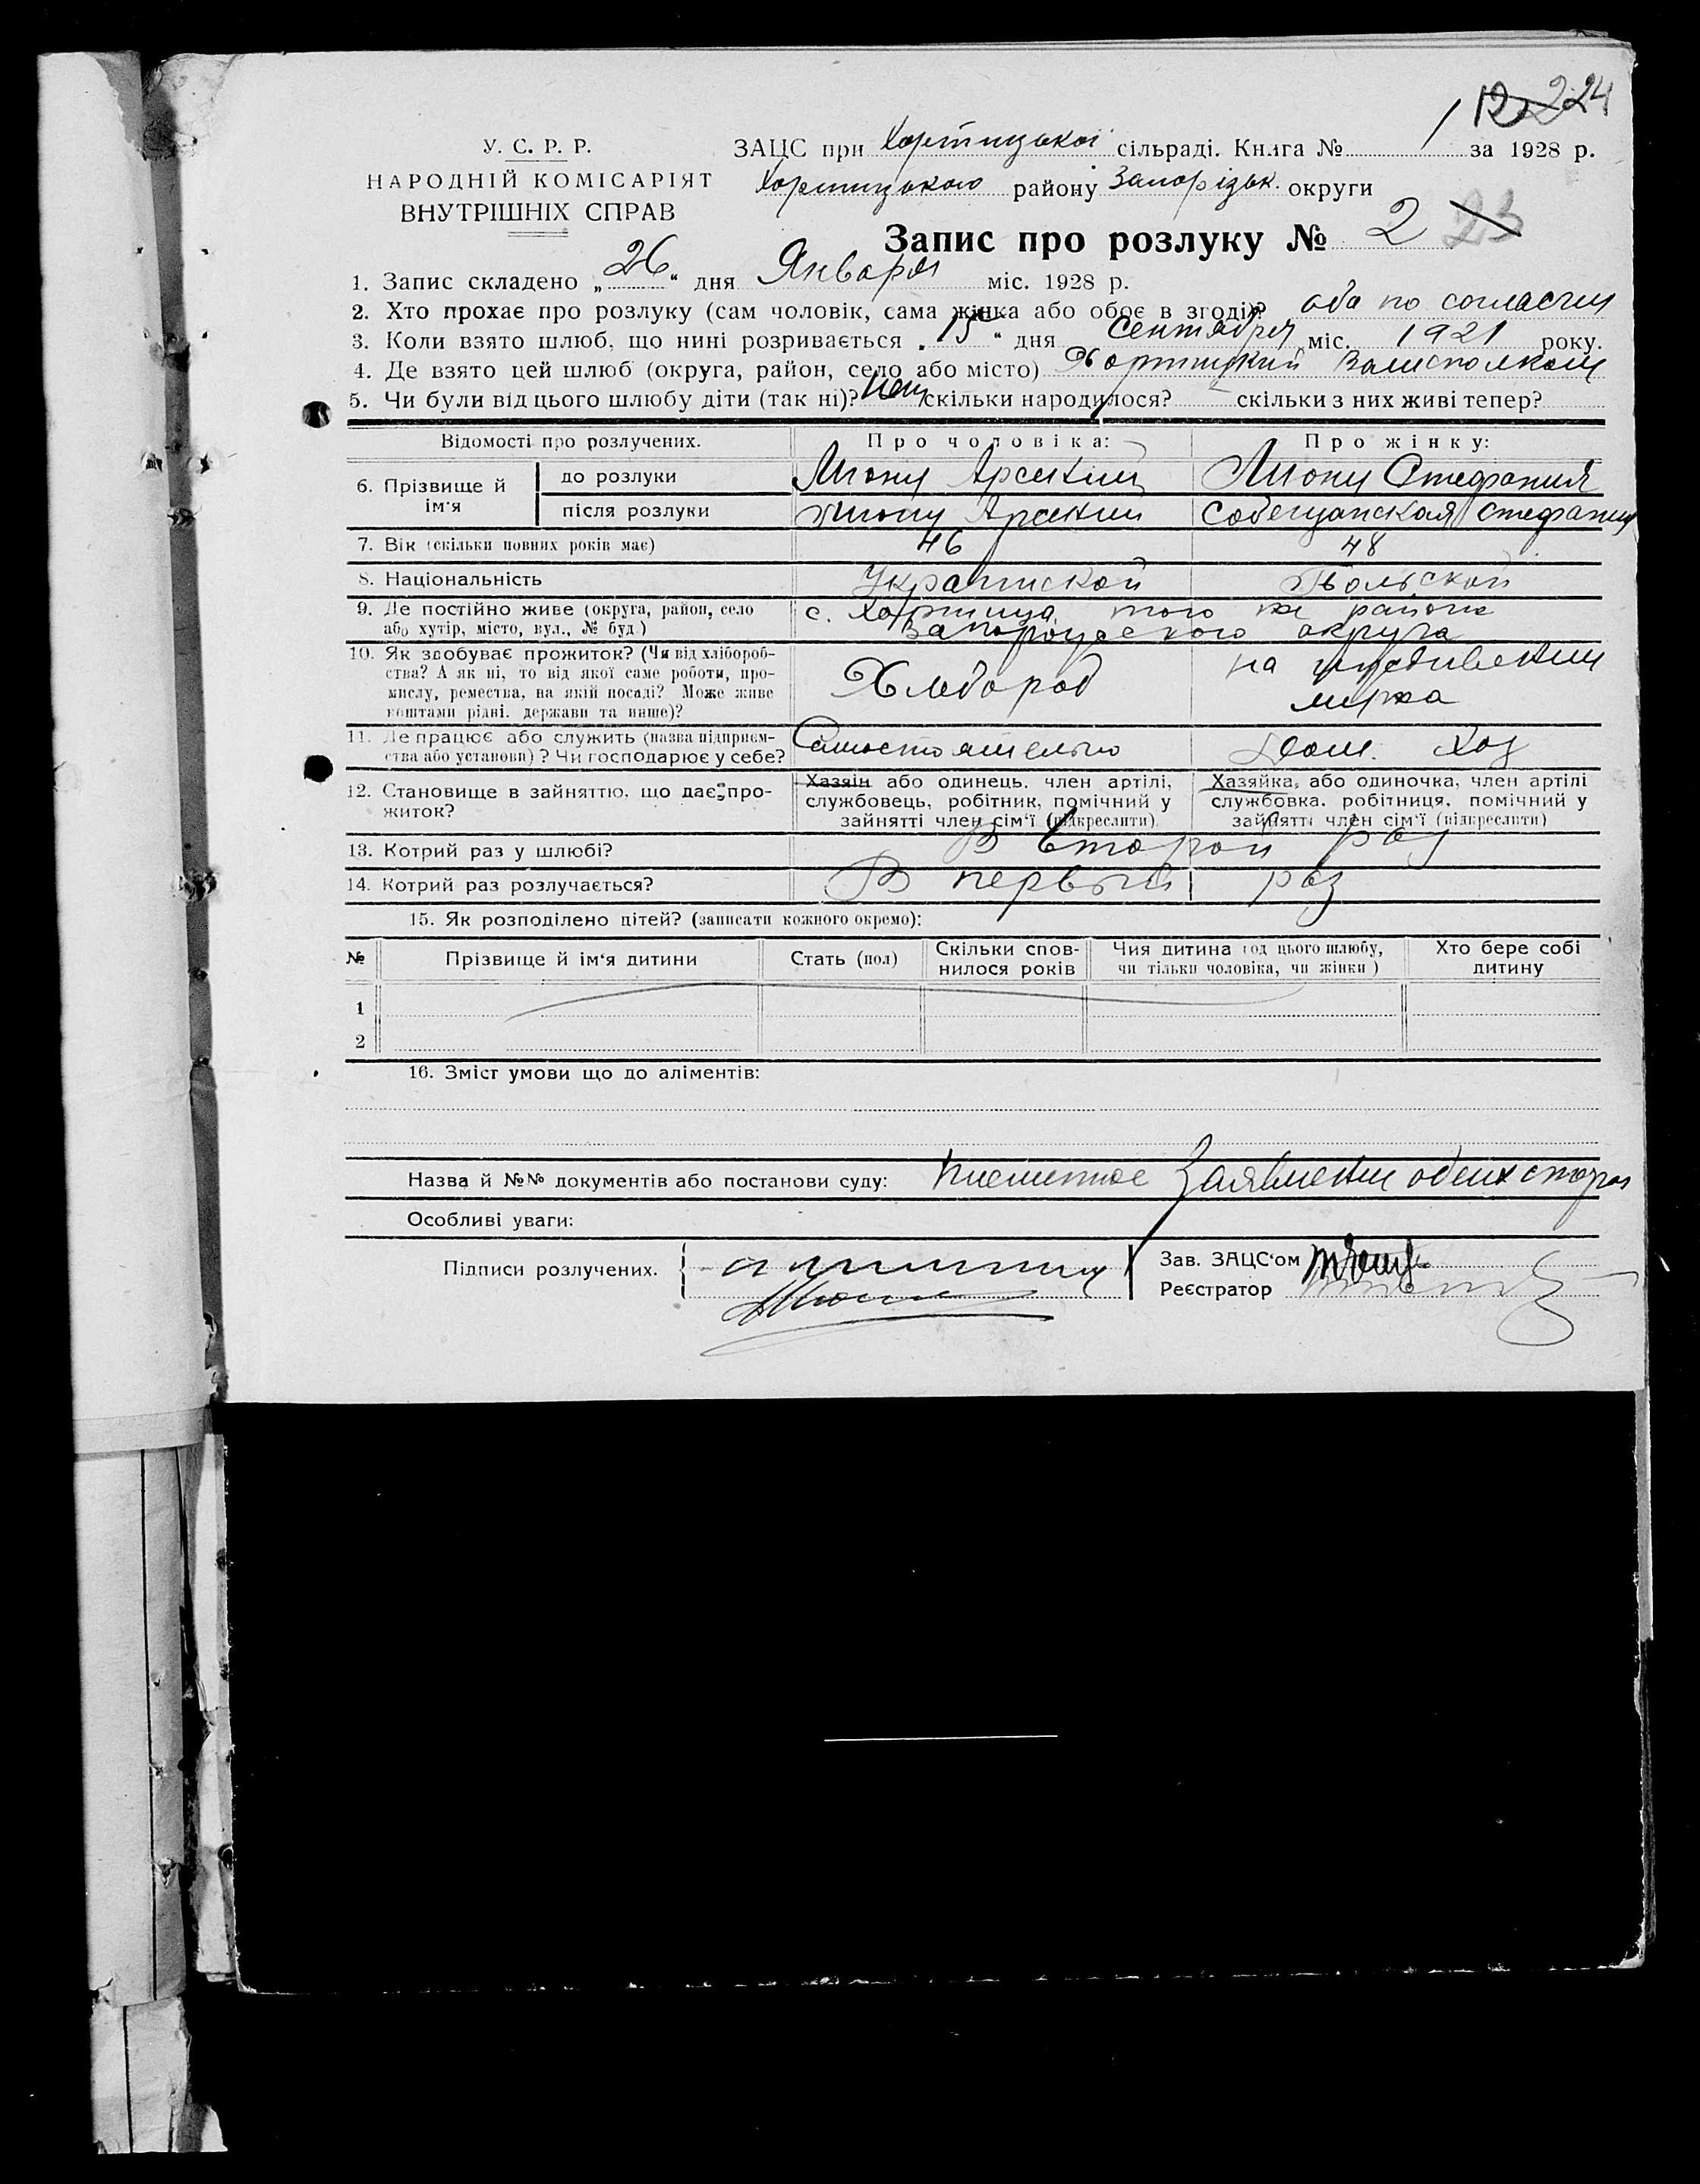 1 12 224
У. С. Р. Р.
НАРОДНІЙ КОМІСАРІЯТ
ВНУТРІШНІХ СПРАВ
ЗАЦС при Хортицької сільраді. Книга № 1 за 1928 р.
Хортицького району Запорізьк. округи
Запис про розлуку № 2 23
1. Запис складено „26“ дня Января міс. 1928 р.
2. Хто прохає про розлуку (сам чоловік, сама жінка або обоє в згоді)? оба по согласии
3. Коли взято шлюб, що нині розривається „15“ дня Сентября міс. 1921 року.
4. Де взято цей шлюб (округа, район, село або місто) Хортицкий Волисполком
5. Чи були від цього шлюбу діти (так ні)? Нет скільки народилося? – скільки з них живі тепер?
Відомості про розлучених. Про чоловіка: Про жінку:
6. Прізвище й ім'я
до розлуки Арсений Стефания
після розлуки Арсений Стефания
7. Вік (скільки повних років має) 46 48
8. Національність Украинской Польской
9. Де постійно живе (округа, район, село або хутір, місто, вул., № буд.)
с. Хортица, того же района
Запорожского округа
10. Як здобуває прожиток? (Чи від хлібороб-
ства? А як ні, то від якої саме роботи, про-
мислу, ремества, на якій посаді? Може живе
коштами рідні, держави та инше)?
Хлебороб
на иждивении
мужа
11. Де працює або служить (назва підприєм-
ства або установи)? Чи господарює у себе?
Самостоятельно Дом. Хоз
12. Становище в зайняттю, що дає про-
житок?
Хазяін або одинець, член артілі,
службовець, робітник, помічний у
зайнятті член сім'ї (підкреслити).
Хазяйка, або одиночка, член артілі
службовка, робітниця, помічний у
зайнятті член сім'ї (підкреслити)
13. Котрий раз у шлюбі? В второй раз
14. Котрий раз розлучається? В первый раз
15. Як розподілено дітей? (записати кожного окремо):
№ Прізвище й ім'я дитини Стать (пол) Скільки спов-
нилося років Чия дитина (од цього шлюбу,
чи тільки чоловіка, чи жінки) Хто бере собі
дитину
1
2
16. Зміст умови що до аліментів:
Назва й №№ документів або постанови суду: Письменное Заявление обеих сторон
Особливі уваги:
Підписи розлучених.
Зав. ЗАЦС'ом
Реєстратор